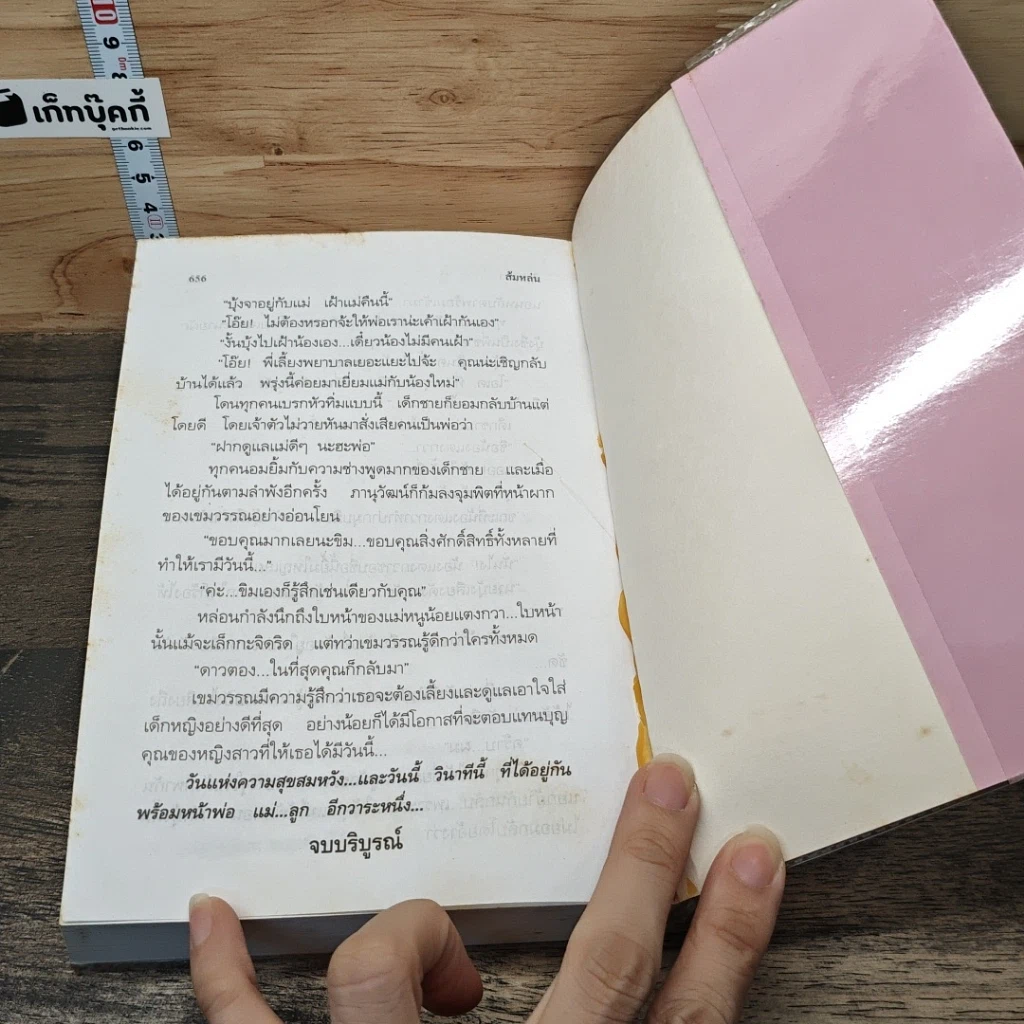 10
9
8
เก็ทบุ๊คกี้
getbookie.com
6
5
4
3
656 ส้มหล่น
"บุ้งจาอยู่กับแม่ เฝ้าแม่คืนนี้"
"โอ๊ย! ไม่ต้องหรอกจ้ะให้พ่อเราน่ะเค้าเฝ้ากันเอง"
"งั้นบุ้งไปเฝ้าน้องเอง...เดี๋ยวน้องไม่มีคนเฝ้า"
"โอ๊ย! พี่เลี้ยงพยาบาลเยอะแยะไปจ้ะ คุณน่ะเชิญกลับ
บ้านได้แล้ว พรุ่งนี้ค่อยมาเยี่ยมแม่กับน้องใหม่"
โดนทุกคนเบรกหัวทิ่มแบบนี้ เด็กชายก็ยอมกลับบ้านแต่
โดยดี โดยเจ้าตัวไม่วายหันมาสั่งเสียคนเป็นพ่อว่า
"ฝากดูแลแม่ดีๆ นะฮะพ่อ"
ทุกคนอมยิ้มกับความช่างพูดมากของเด็กชาย และเมื่อ
ได้อยู่กันตามลำพังอีกครั้ง ภานุวัฒน์ก็ก้มลงจุมพิตที่หน้าผาก
ของเขมวรรณอย่างอ่อนโยน
"ขอบคุณมากเลยนะขิม...ขอบคุณสิ่งศักดิ์สิทธิ์ทั้งหลายที่
ทำให้เรามีวันนี้..."
"ค่ะ...ขิมเองก็รู้สึกเช่นเดียวกับคุณ"
หล่อนกำลังนึกถึงใบหน้าของแม่หนูน้อยแตงกวา...ใบหน้า
นั้นแม้จะเล็กกะจิดริด แต่ทว่าเขมวรรณรู้ดีกว่าใครทั้งหมด
"ดาวตอง...ในที่สุดคุณก็กลับมา"
เขมวรรณมีความรู้สึกว่าเธอจะต้องเลี้ยงและดูแลเอาใจใส่
เด็กหญิงอย่างดีที่สุด อย่างน้อยก็ได้มีโอกาสที่จะตอบแทนบุญ
คุณของหญิงสาวที่ให้เธอได้มีวันนี้...
วันแห่งความสุขสมหวัง...และวันนี้ วินาทีนี้ ที่ได้อยู่กัน
พร้อมหน้าพ่อ แม่...ลูก อีกวาระหนึ่ง...
จบบริบูรณ์